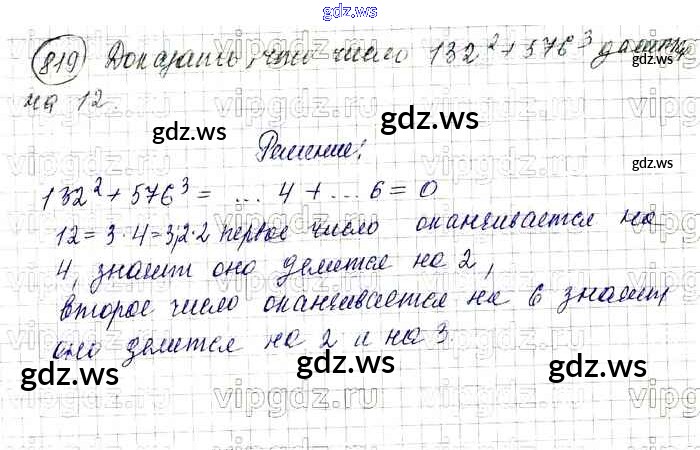 gdz.ws
819 Доказать, что число 132² + 576³ делится
на 12.
gdz.ws gdz.ws gdz.ws
Решение:
132² + 576³ = ... 4 + ... 6 = 0
12 = 3 · 4 = 3·2·2 первое число оканчивается на
4, значит оно делится на 2,
второе число оканчивается на 6 значит
оно делится на 2 и на 3.
gdz.ws gdz.ws gdz.ws
vipgdz.ru